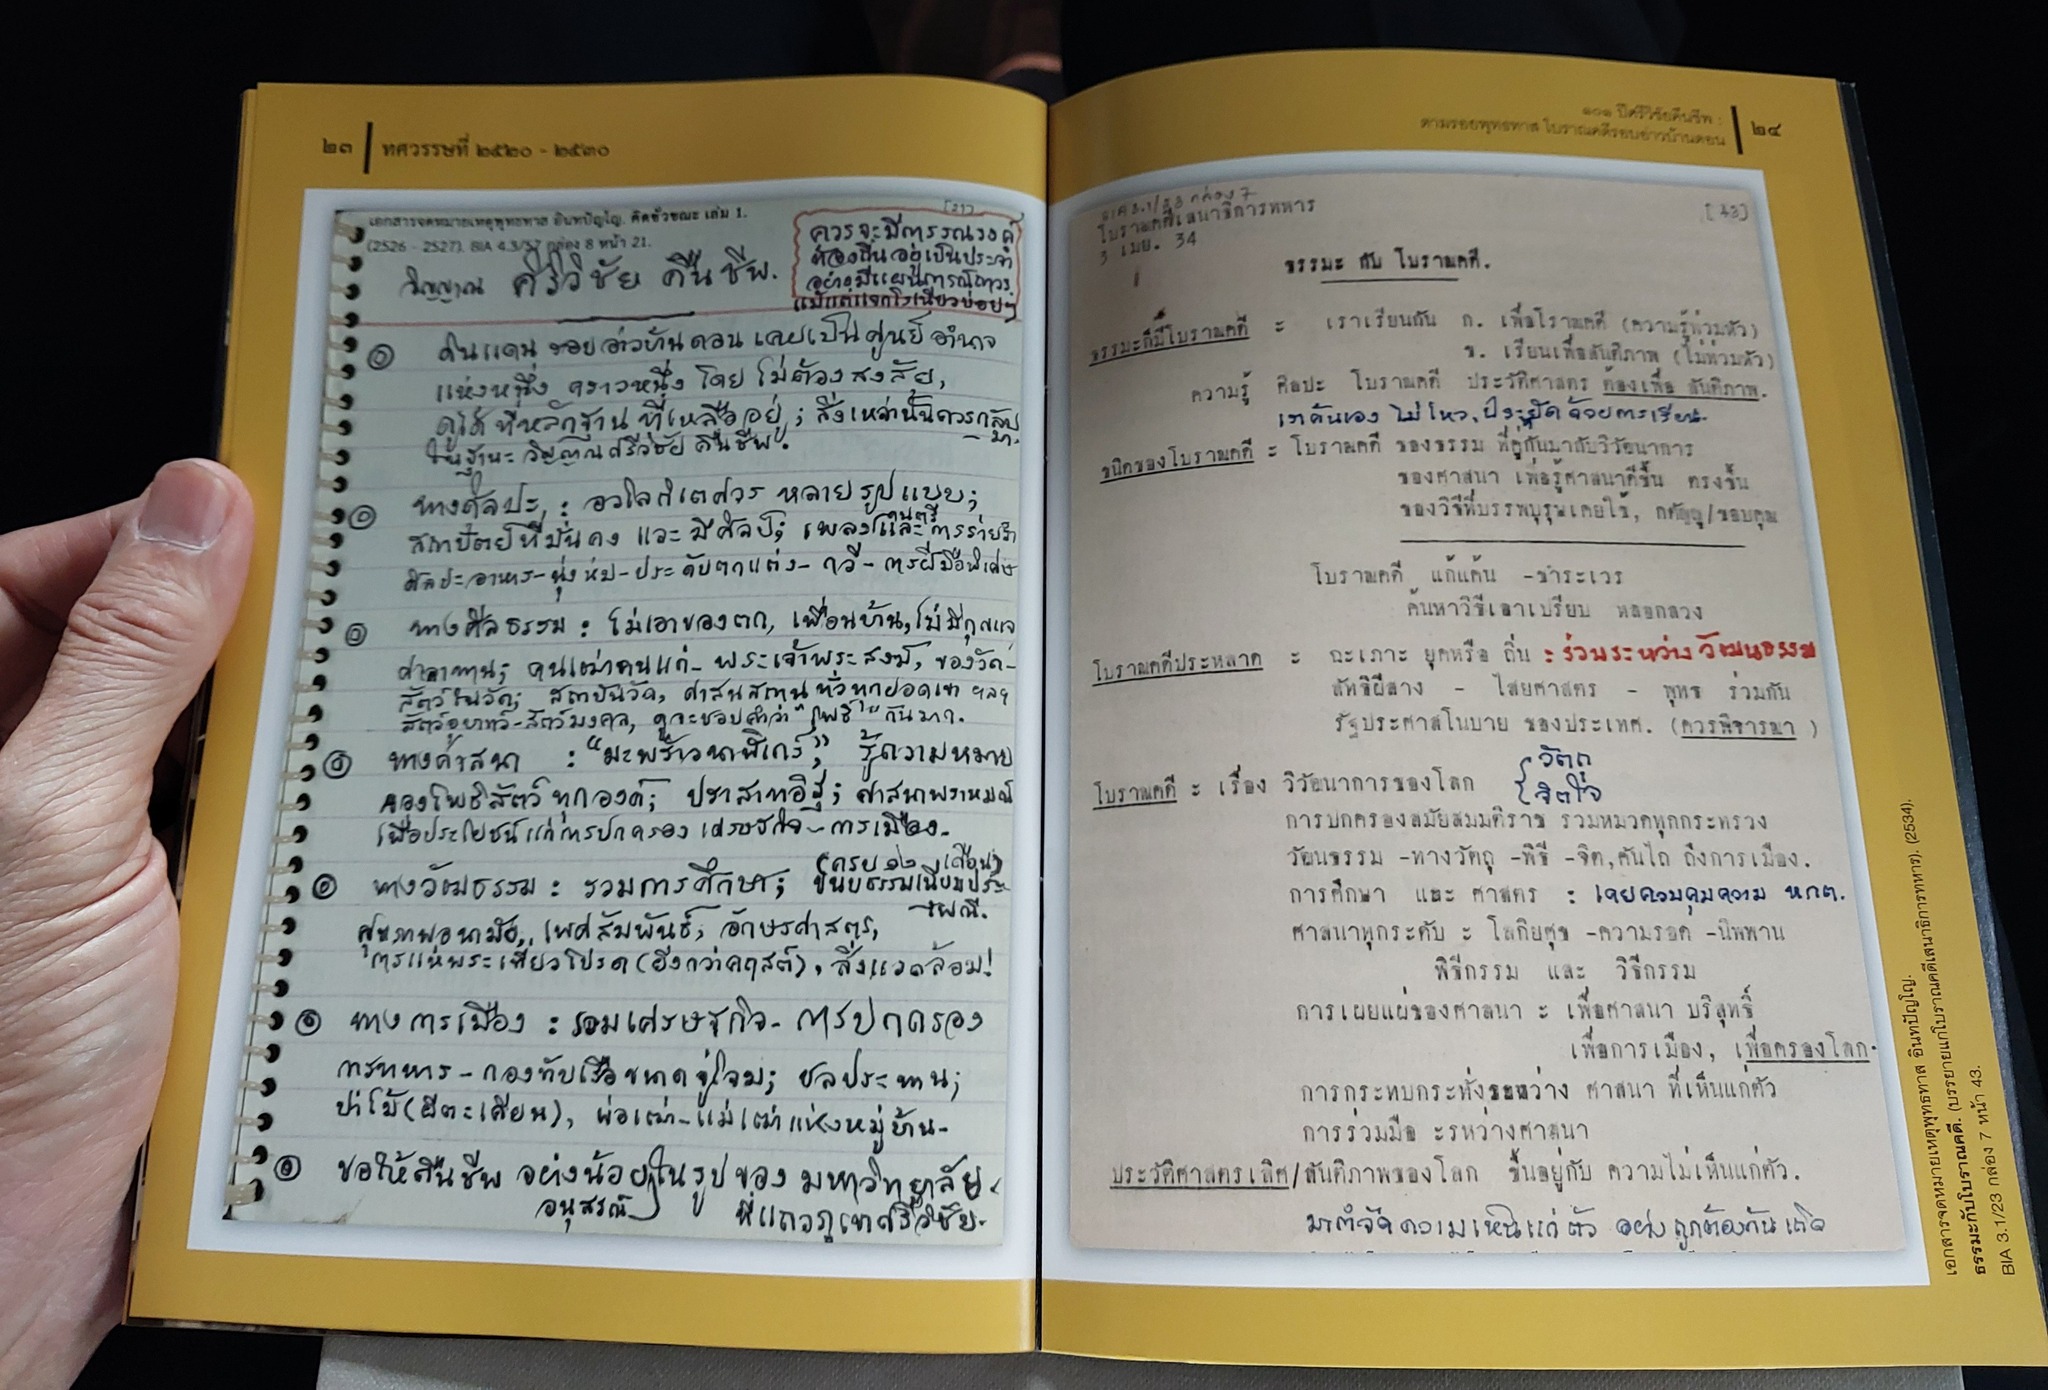 ๒๓ ทศวรรษที่ ๒๕๒๐ - ๒๕๓๐
เอกสารจดหมายเหตุพุทธทาส อินทปัญโญ. คิดชั่วขณะ เล่ม 1.
(2526 - 2527). BIA 4.3/37 กล่อง 8 หน้า 21.
[21]
วิญญาณ ศรีวิชัย คืนชีพ.
ควรจะมีการรณรงค์
ท้องถิ่นอยู่เป็นประจำ
อย่างมีแผนการณ์ถาวร
แม้แต่แจกใบเนียวบ่อยๆ
๑ ดินแดน รอบอ่าวบ้านดอน เคยเป็นศูนย์อำนาจ
แห่งหนึ่ง คราวหนึ่ง โดย ไม่ต้องสงสัย,
ดูได้ที่หลักฐานที่เหลืออยู่; สิ่งเหล่านั้นควรกลับมา,
ในฐานะวิญญาณศรีวิชัยคืนชีพ.
๐ ทางศิลปะ, : อวโลกิเตศวร หลายรูปแบบ;
สถาปัตย์ที่มั่นคง และ มีศิลป์; เพลงดนตรีและการร่ายรำ
ศิลปะอาหาร-นุ่งห่ม-ประดับตกแต่ง-กวี-การฝีมือพิเศษ
๐ ทางศีลธรรม : ไม่เอาของตก, เพื่อนบ้าน, ไม่มีกุญแจ
ศาลาทาน; คนเฒ่าคนแก่-พระเจ้าพระสงฆ์, ของวัด-
สัตว์ในวัด; สถาบันวัด, ศาสนสถานทั่วทุกยอดเขา ฯลฯ
สัตว์อุบาทว์-สัตว์มงคล, ดูจะชอบคำว่า "โพธิ์" กันมาก.
๐ ทางศาสนา : "มะพร้าวนาฬิเกร์", รู้ความหมาย
ของโพธิสัตว์ทุกองค์; ปราสาทอิฐ; ศาสนาพราหมณ์
เพื่อประโยชน์แก่การปกครอง เศรษฐกิจ-การเมือง.
๐ ทางวัฒนธรรม : รวมการศึกษา; (ครบ ๑๒ เดือน) ขนบธรรมเนียมประเพณี.
สุขภาพอนามัย, เพศสัมพันธ์; อักษรศาสตร์,
การแห่พระเที่ยวโปรด (ยิ่งกว่าคฤสต์), สิ่งแวดล้อม!
๐ ทางการเมือง : รวมเศรษฐกิจ-การปกครอง
การทหาร-กองทัพเรือขนาดจู่โจม; ชลประทาน;
ป่าไม้ (ผีตะเคียน), พ่อเฒ่า-แม่เฒ่าแห่งหมู่บ้าน-
๐ ขอให้คืนชีพ อย่างน้อยในรูปของ มหาวิทยาลัย
อนุสรณ์ ที่แถวภูเขาศรีวิชัย.
๑๐๑ ปีศรีวิชัยคืนชีพ :
ตามรอยพุทธทาส โบราณคดีรอบอ่าวบ้านดอน ๒๔
BIA 3.1/23 กล่อง 7
[43]
โบราณคดีเสนาธิการทหาร
3 เมย. 34
ธรรมะ กับ โบราณคดี.
ธรรมะก็มีโบราณคดี = เราเรียนกัน ก. เพื่อโราณคดี (ความรู้ท่วมหัว)
ข. เรียนเพื่อสันติภาพ (ไม่ท่วมหัว)
ความรู้ ศิลปะ โบราณคดี ประวัติศาสตร์ ต้องเพื่อ สันติภาพ.
เราค้นเอง ไม่ไหว, ประหยัดด้วยการเรียน.
ชนิดของโบราณคดี = โบราณคดี ของธรรม ที่คู่กันมากับวิวัฒนาการ
ของศาสนา เพื่อรู้ศาสนาดีขึ้น ตรงขึ้น
ของวิธีที่บรรพบุรุษเคยใช้, กตัญญู/ขอบคุณ
โบราณคดี แก้แค้น -ชำระเวร
ค้นหาวิธีเอาเปรียบ หลอกลวง
โบราณคดีประหลาด = ฉะเภาะ ยุคหรือ ถิ่น : ร่วมระหว่างวัฒนธรรม
ลัทธิผีสาง - ไสยศาสตร์ - พุทธ ร่วมกัน
รัฐประศาสโนบาย ของประเทศ. (ควรพิจารณา)
โบราณคดี = เรื่อง วิวัฒนาการของโลก { วัตถุ
{ จิตใจ
การปกครองสมัยสมมติราช รวมหมวดทุกกระทรวง
วัฒนธรรม -ทางวัตถุ -พิธี -จิต, คันไถ ถึงการเมือง.
การศึกษา และ ศาสตร์ : เคยควบคุมความ หกต.
ศาสนาทุกระดับ = โลกิยสุข -ความรอด -นิพพาน
พิธีกรรม และ วิธีกรรม
การเผยแผ่ของศาสนา = เพื่อศาสนา บริสุทธิ์
เพื่อการเมือง, เพื่อครองโลก.
การกระทบกระทั่งระหว่าง ศาสนา ที่เห็นแก่ตัว
การร่วมมือ ะรหว่างศาสนา
ประวัติศาสตรเลิศ/สันติภาพของโลก ขึ้นอยู่กับ ความไม่เห็นแก่ตัว.
มากำจัดความเห็นแก่ตัว อย่างถูกต้องกันเถิด
เอกสารจดหมายเหตุพุทธทาส อินทปัญโญ.
ธรรมะกับโบราณคดี. (บรรยายแก่โบราณคดีเสนาธิการทหาร). (2534).
BIA 3.1/23 กล่อง 7 หน้า 43.